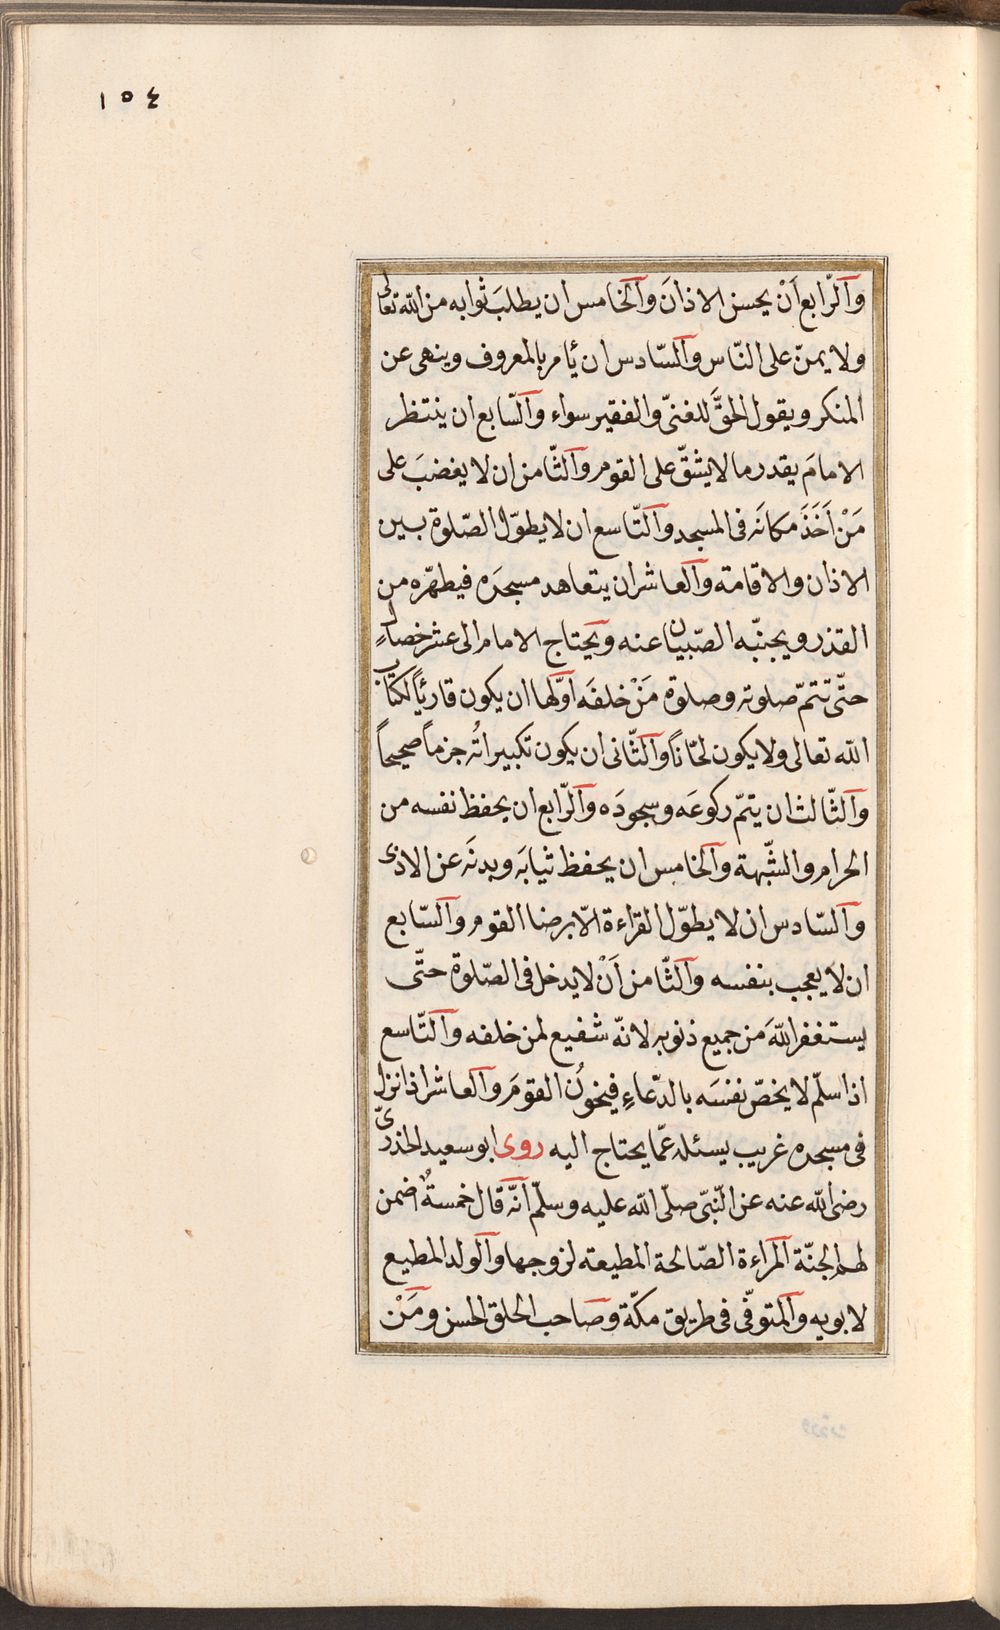 ١٥٤
والرّابع اَنْ يحسن الاذانَ والخامس ان يطلبَ ثوابه من اللّه تعالى
ولا يمنّ على النّاس والسّادس ان ئامر بالمعروف وينهى عن
المنكر ويقول الحقَّ للغنىّ والفقير سواء والسّابع ان ينتظر
الامامَ يقدر ما لا يشقّ على القوم والثّامن ان لا يغضبَ على
مَنْ اَخَذَ مكانَه فى المسجد والتّاسع ان لا يطوّل الصّلوة بين
الاذان والاقامة والعاشر ان يتعاهد مسجدَه فيطهّره من
القذر ويجنبّه الصّبيان عنه ويحتاج الامام الى عشر خصالٍ
حتّى تتمّ صلوته وصلوة مَنْ خلفَه اوّلها ان يكون قارئاً لكتاب
اللّه تعالى ولا يكون لحّاناً والثّانى ان يكون تكبيراتُه جزماً صحيحاً
والثّالث ان يتمّ ركوعَه وسجودَه والرّابع ان يحفظ نفسه من
الحرام والشّبهة والخامس ان يحفظ ثيابَه وبدنَه عن الاذى
والسّادس ان لا يطوّل القراءة الّا برضا القوم والسّابع
ان لا يعجب بنفسه والثّامن اَنْ لا يدخل فى الصّلوة حتّى
يستغفر اللّهَ من جميع ذنوبه لانّه شفيع لمن خلفه والتّاسع
اذا سلّم لا يخصّ نفسَه بالدّعاءِ فيخونُ القومَ والعاشر اذا نزل
فى مسجده غريب يسئله عمّا يحتاج اليه روى ابو سعيد الخذرىّ
رضى اللّه عنه عن النّبىّ صلّى اللّه عليه وسلّم انّه قال خمسةٌ اضمن
لهم الجنّة المراءة الصّالحة المطيعة لزوجها والولد المطيع
لابويه والمتوفّى فى طريق مكّة وصاحب الخلق الحسن ومَنْ